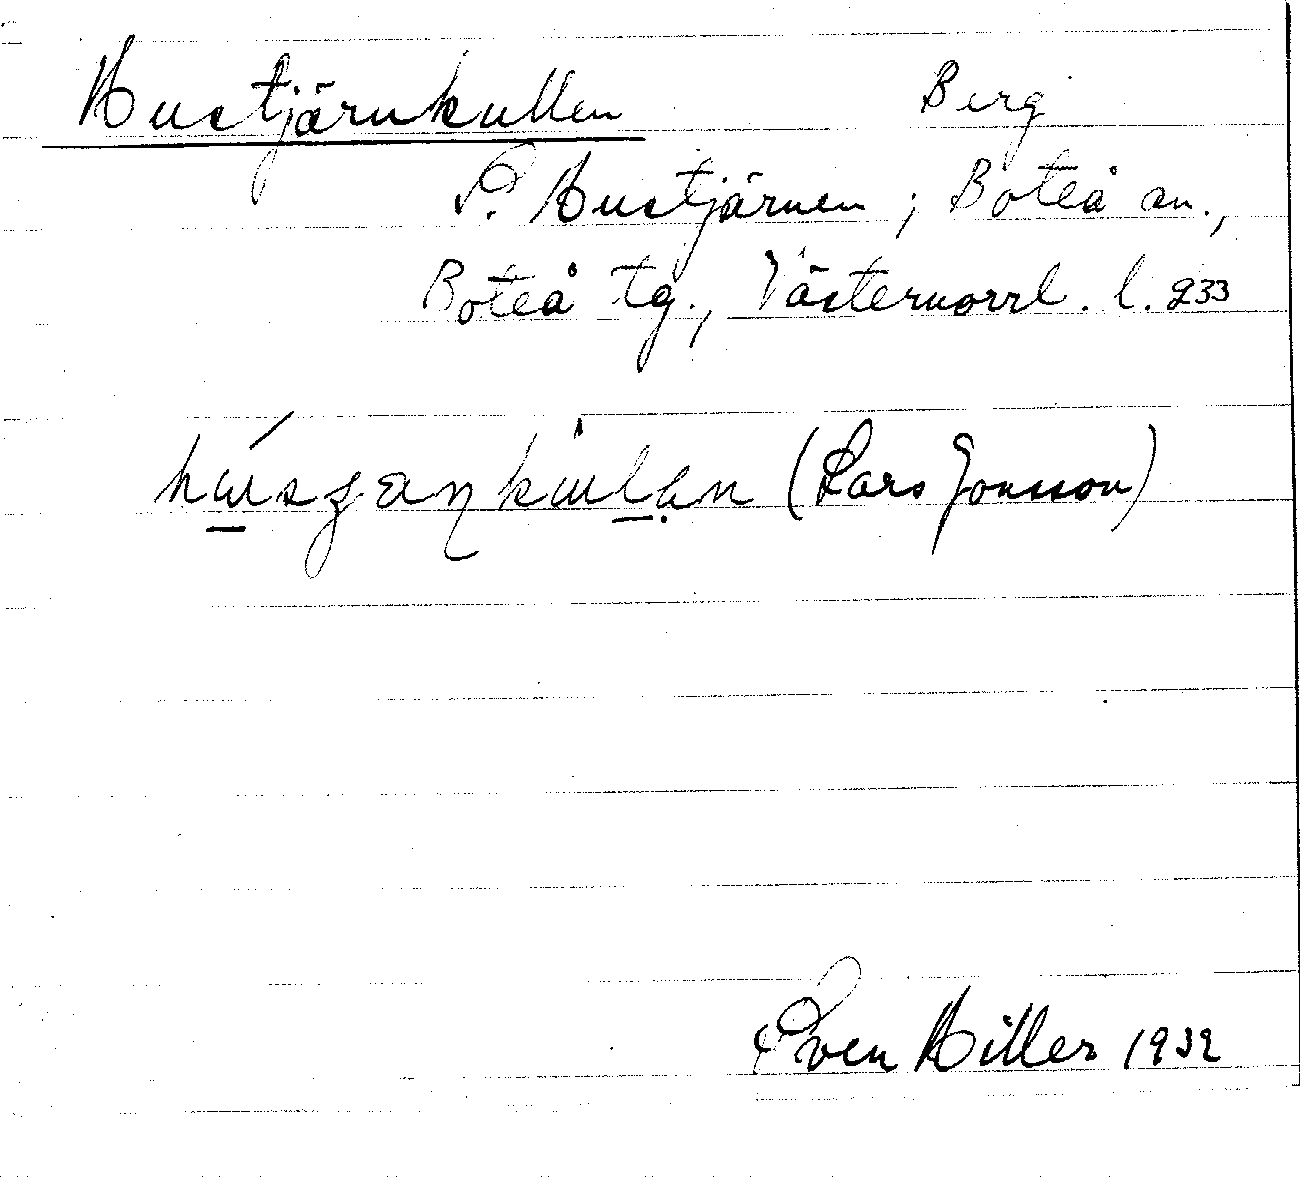 Hustjärnkullen Berg
S. Hustjärnen ; Boteå sn.,
Boteå tg., Västernorrl. l. 233
(Lars Jonsson)
Sven Hiller 1932